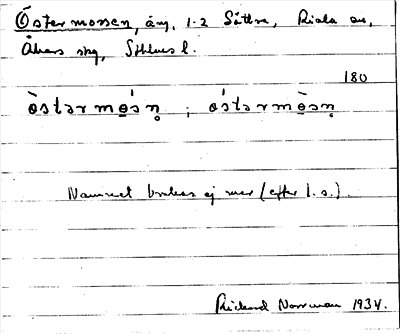 Östermossen, äng, 1-2 Sättra, Riala sn,
Åkers skg, Sthlms l.
180
ö̀stərmo̤sn̥ ; östərmò̤sn̥
Namnet brukas ej mer (efter l. s.).
Rickard Norrman 1934.